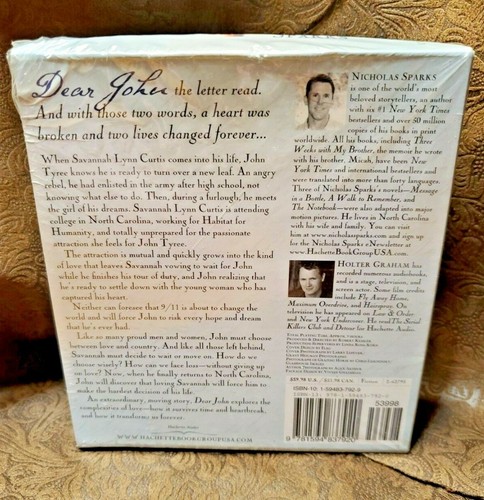 Dear John the letter read.
And with those two words, a heart was
broken and two lives changed forever...
When Savannah Lynn Curtis comes into his life, John
Tyree knows he is ready to turn over a new leaf. An angry
rebel, he had enlisted in the army after high school, not
knowing what else to do. Then, during a furlough, he meets
the girl of his dreams. Savannah Lynn Curtis is attending
college in North Carolina, working for Habitat for
Humanity, and totally unprepared for the passionate
attraction she feels for John Tyree.
The attraction is mutual and quickly grows into the kind
of love that leaves Savannah vowing to wait for John
while he finishes his tour of duty, and John realizing that
he's ready to settle down with the young woman who has
captured his heart.
Neither can foresee that 9/11 is about to change the
world and will force John to risk every hope and dream
that he's ever had.
Like so many proud men and women, John must choose
between love and country. And like all those left behind,
Savannah must decide to wait or move on. How do we
choose wisely? How can we face loss—without giving up
on love? Now, when he finally returns to North Carolina,
John will discover that loving Savannah will force him to
make the hardest decision of his life.
An extraordinary, moving story, Dear John explores the
complexities of love—how it survives time and heartbreak,
and how it transforms us forever.
WWW.HACHETTEBOOKGROUPUSA.COM
NICHOLAS SPARKS
is one of the world's most
beloved storytellers, an author
with six #1 New York Times
bestsellers and over 50 million
copies of his books in print
worldwide. All his books, including Three
Weeks with My Brother, the memoir he wrote
with his brother, Micah, have been New
York Times and international bestsellers and
were translated into more than forty languages.
Three of Nicholas Sparks's novels—Message
in a Bottle, A Walk to Remember, and
The Notebook—were also adapted into major
motion pictures. He lives in North Carolina
with his wife and family. You can visit
him at www.nicholassparks.com and sign up
for the Nicholas Sparks eNewsletter at
www.HachetteBookGroupUSA.com.
HOLTER GRAHAM has
recorded numerous audiobooks,
and is a stage, television, and
screen actor. Some film credits
include Fly Away Home,
Maximum Overdrive, and Hairspray. On
television he has appeared on Law & Order
and New York Undercover. He read The Serial
Killers Club and Detour for Hachette Audio.
ISBN-10: 1-59483-792-9
53998
9 781594 837920